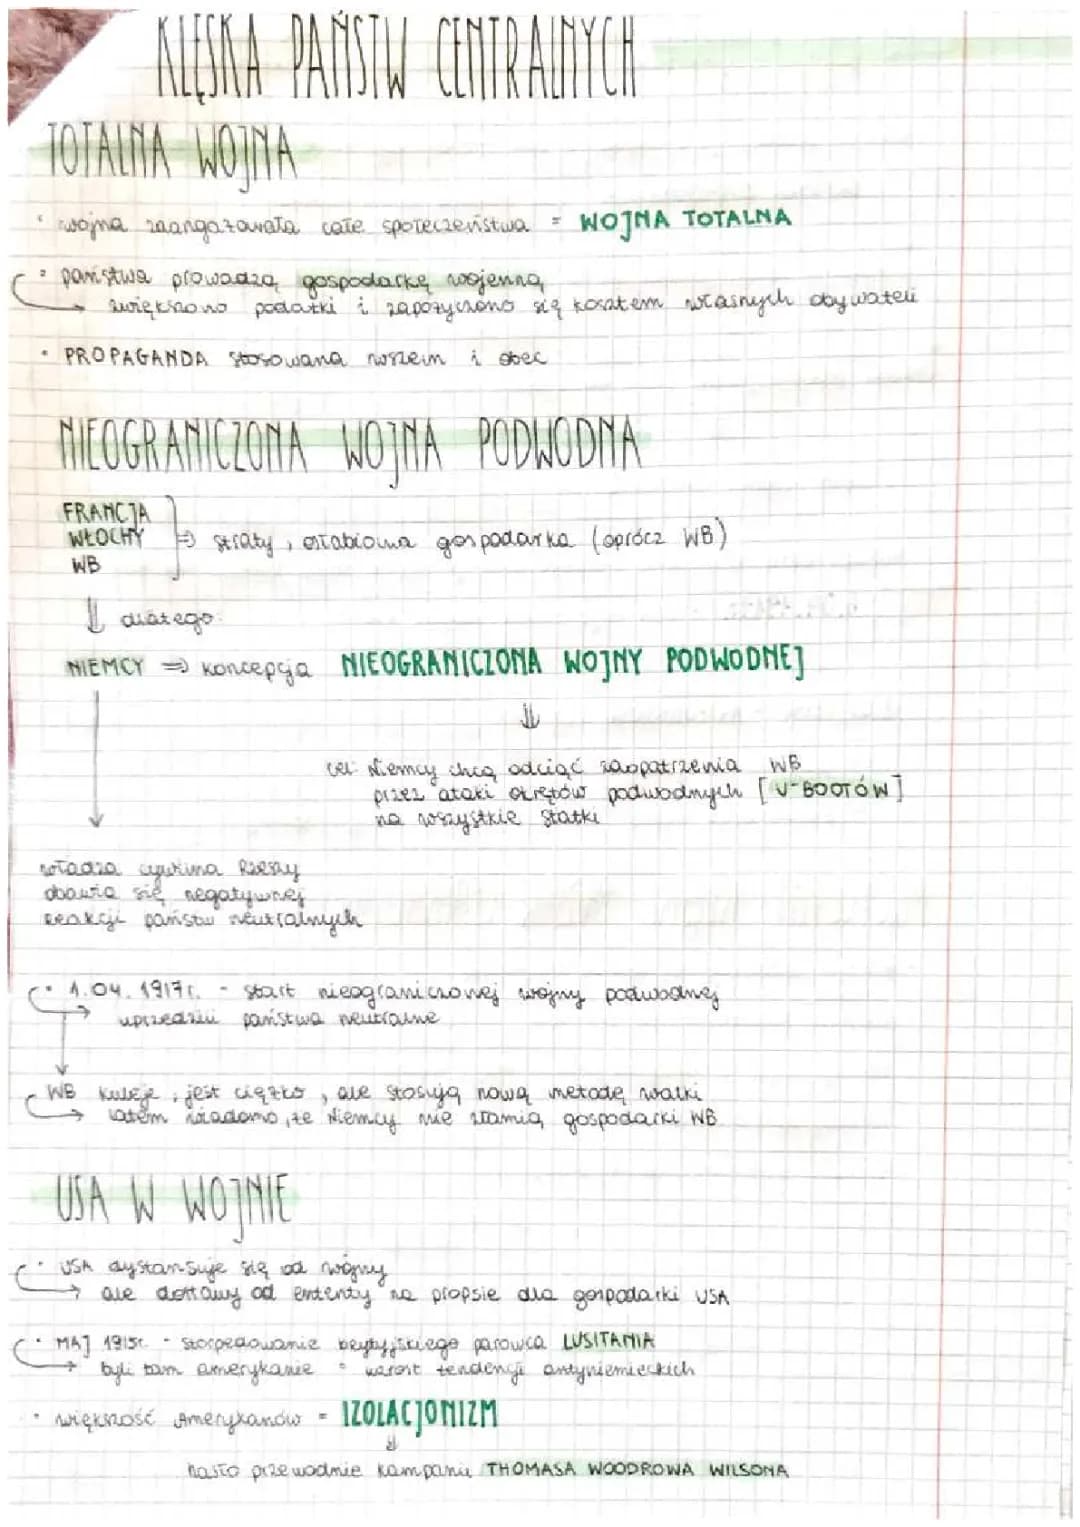 KLĘSKA PAŃSTW CENTRALNYCH
TOTALNA WOJNA
• wojna zaangażowała całe społeczeństwa = WOJNA TOTALNA
• państwa prowadzą gospodarkę wojenną
→ zwiększono podatki i zapożyczono się kosztem własnych obywateli
• PROPAGANDA stosowana wszem i obec
NIEOGRANICZONA WOJNA PODWODNA
FRANCJA
WŁOCHY ⇒ straty, osłabiona gospodarka (oprócz WB)
WB
⇓ dlatego
NIEMCY ⇒ koncepcja NIEOGRANICZONA WOJNY PODWODNEJ
⇓
cel: Niemcy chcą odciąć zaopatrzenia WB
przez ataki okrętów podwodnych [U-BOOTÓW]
na wszystkie statki
władza cywilna Rzeszy
obawia się negatywnej
reakcji państw neutralnych
• 1.04.1917r. - start nieograniczonej wojny podwodnej
→ uprzedzili państwa neutralne
WB kuleje, jest ciężko, ale stosują nową metodę walki
→ latem wiadomo, że Niemcy nie złamią gospodarki WB
USA W WOJNIE
• USA dystansuje się od wojny
→ ale dostawy od ententy na propsie dla gospodarki USA
• MAJ 1915r. - storpedowanie brytyjskiego parowca LUSITANIA
→ byli tam amerykanie = wzrost tendencji antyniemieckich
• większość Amerykanów = IZOLACJONIZM
⇓
hasło przewodnie kampanii THOMASA WOODROWA WILSONA